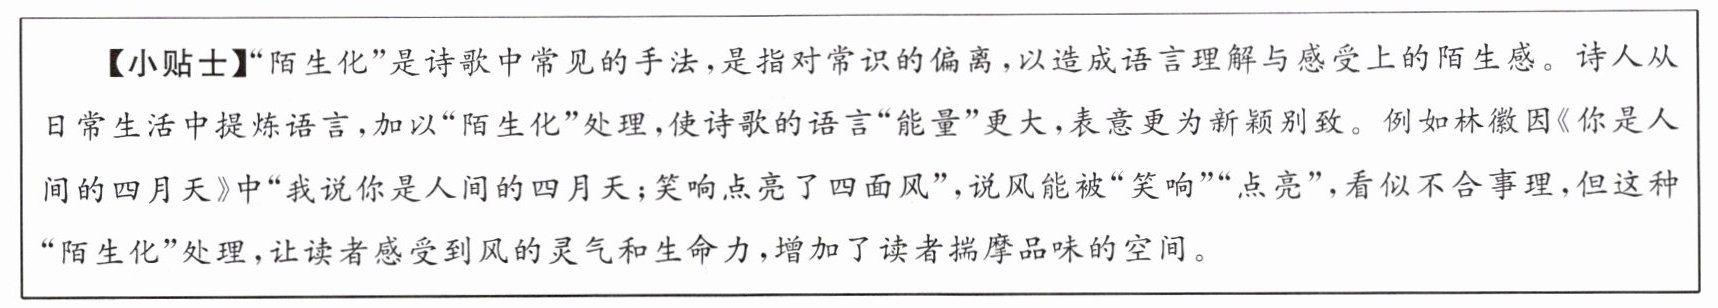 【小贴士】“陌生化”是诗歌中常见的手法,是指对常识的偏离,以造成语言理解与感受上的陌生感。诗人从
日常生活中提炼语言,加以“陌生化”处理,使诗歌的语言“能量”更大,表意更为新颖别致。例如林徽因《你是人
间的四月天》中“我说你是人间的四月天;笑响点亮了四面风”,说风能被“笑响”“点亮”,看似不合事理,但这种
“陌生化”处理,让读者感受到风的灵气和生命力,增加了读者揣摩品味的空间。